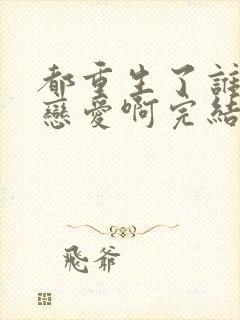 都重生了誰
戀愛啊完結
飛爺